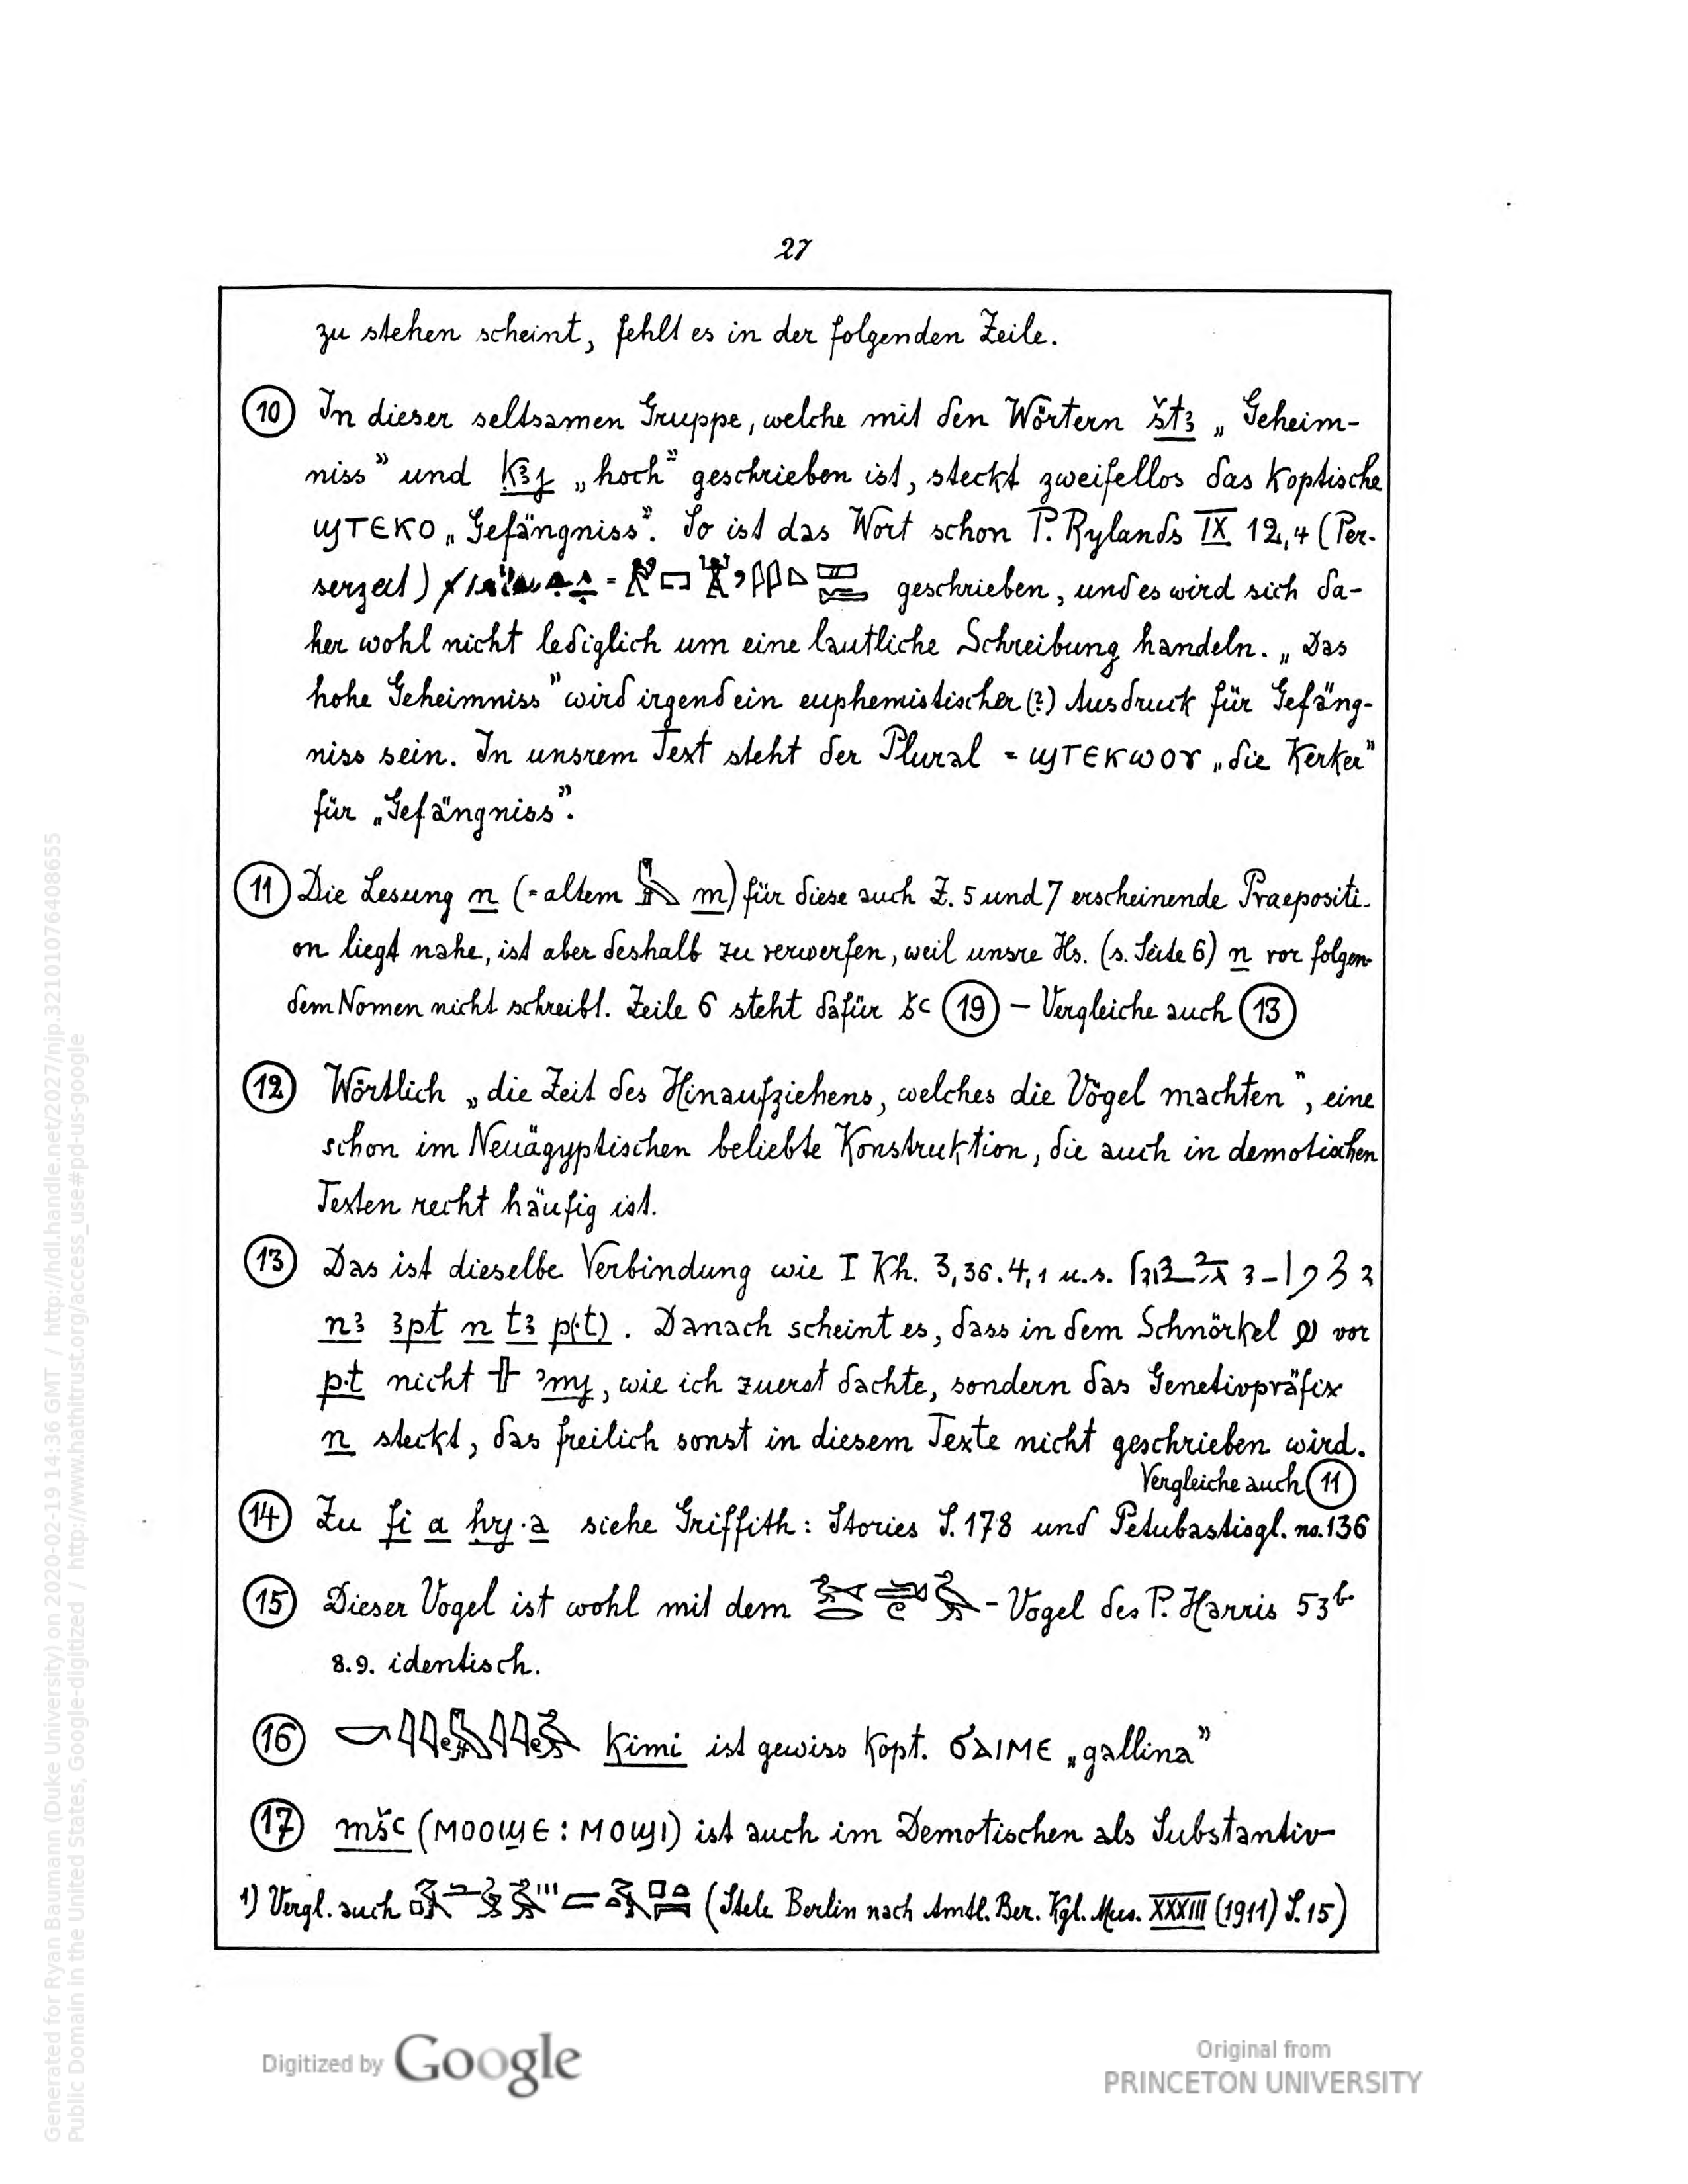 27
zu stehen scheint, fehlt es in der folgenden Zeile.
⑩ In dieser seltsamen Gruppe, welche mit den Wörtern št3 „Geheim-
niss" und k3j „hoch" geschrieben ist, steckt zweifellos das koptische
ϣⲧⲉⲕⲟ „Gefängniss". So ist das Wort schon P. Rylands IX 12,4 (Per-
serzeit) = geschrieben, und es wird sich da-
her wohl nicht lediglich um eine lautliche Schreibung handeln. „Das
hohe Geheimniss" wird irgend ein euphemistischer (?) Ausdruck für Gefäng-
niss sein. In unsrem Text steht der Plural = ϣⲧⲉⲕⲱⲟⲩ „die Kerker"
für „Gefängniss".
⑪ Die Lesung n (= altem m) für diese auch Z. 5 und 7 erscheinende Praepositi-
on liegt nahe, ist aber deshalb zu verwerfen, weil unsre Hs. (s. Seite 6) n vor folgen-
dem Nomen nicht schreibt. Zeile 6 steht dafür ⑲ – Vergleiche auch ⑬
⑫ Wörtlich „die Zeit des Hinaufziehens, welches die Vögel machten", eine
schon im Neuägyptischen beliebte Konstruktion, die auch in demotischen
Texten recht häufig ist.
⑬ Das ist dieselbe Verbindung wie I Kh. 3,36. 4,1 u.s.
n3 3pt n t3 p(·t). Danach scheint es, dass in dem Schnörkel vor
p·t nicht ꜣmj, wie ich zuerst dachte, sondern das Genetivpräfix
n steckt, das freilich sonst in diesem Texte nicht geschrieben wird.
Vergleiche auch ⑪
⑭ Zu fi a hrj·a siehe Griffith: Stories S. 178 und Petubastisgl. no. 136
⑮ Dieser Vogel ist wohl mit dem - Vogel des P. Harris 53 b.
8.9. identisch.
⑯ kimi ist gewiss kopt. ϭⲁⲓⲙⲉ „gallina"
⑰ mšc (ⲙⲟⲟϣⲉ : ⲙⲟϣⲓ) ist auch im Demotischen als Substantiv
1) Vergl. auch (Stele Berlin nach Amtl. Ber. Kgl. Mus. XXXIII (1911) S. 15)
Digitized by Google
Original from
PRINCETON UNIVERSITY
Generated for Ryan Baumann (Duke University) on 2020-02-19 14:36 GMT / http://hdl.handle.net/2027/njp.32101076408655
Public Domain in the United States, Google-digitized / http://www.hathitrust.org/access_use#pd-us-google